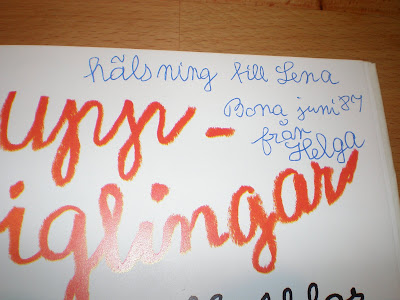 hälsning till Lena
Bona juni 87
från
Helga
upp-
iglingar